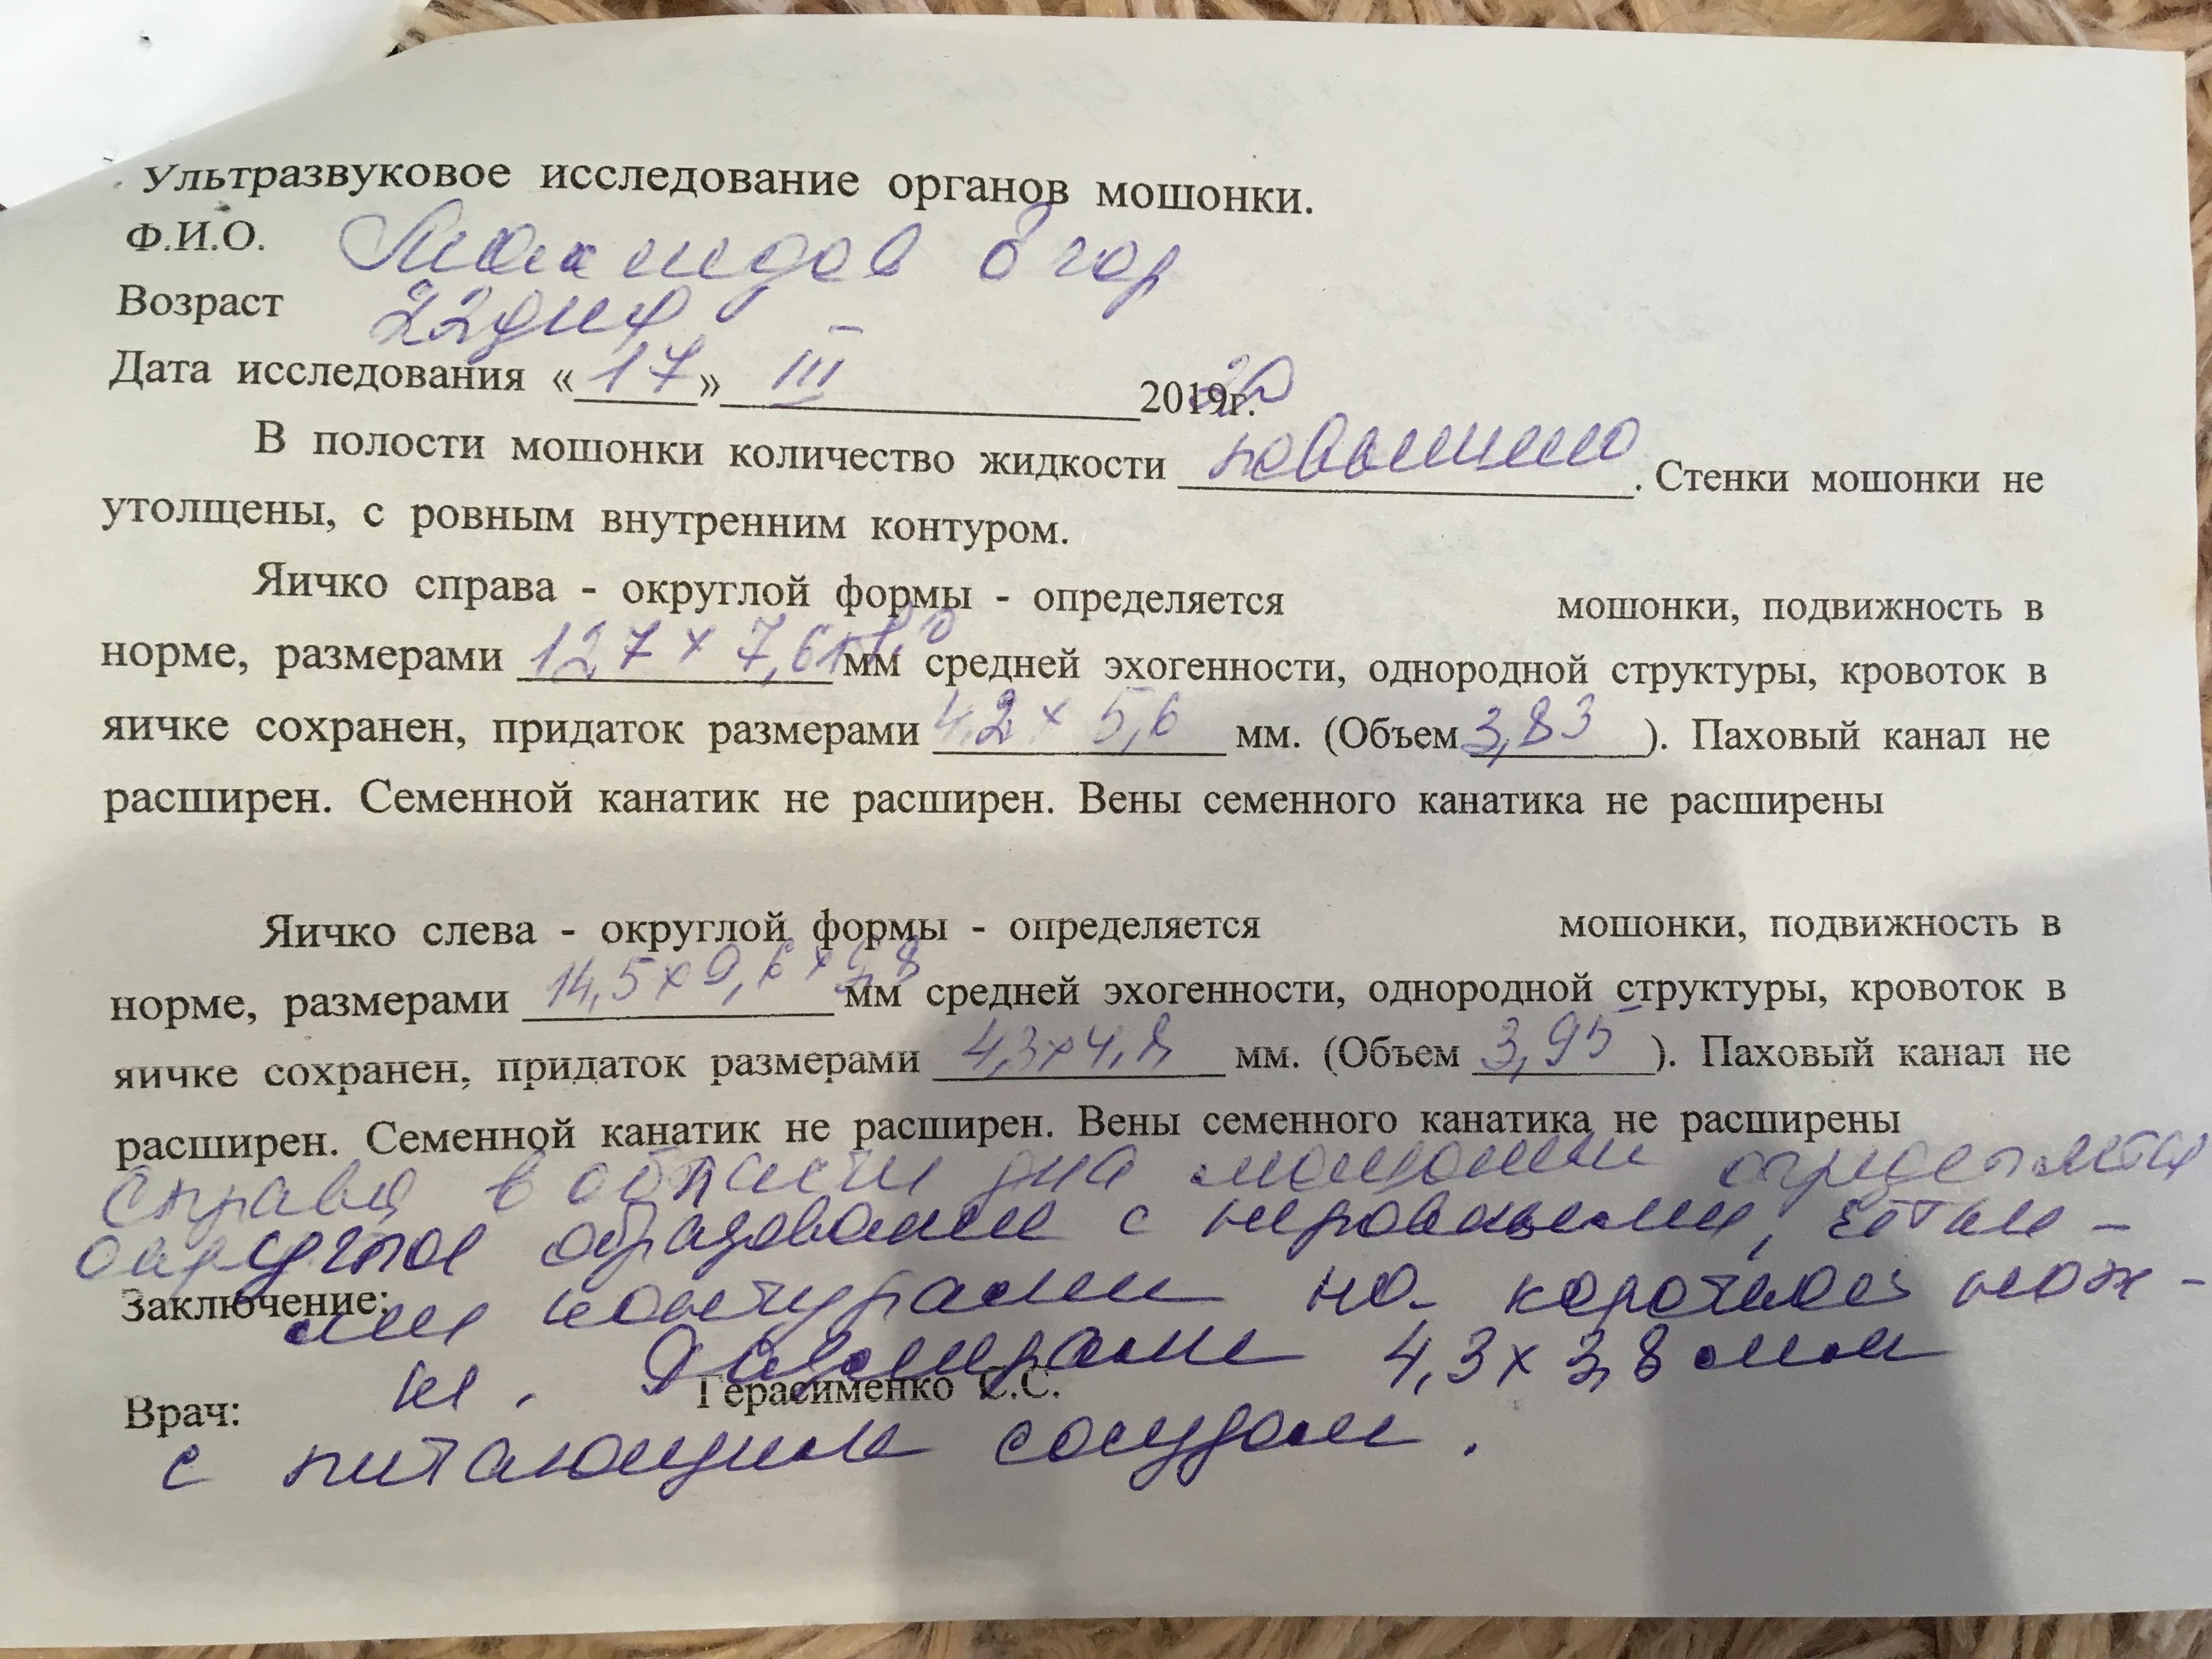 Ультразвуковое исследование органов мошонки.
Ф.И.О. Егор
Возраст 22 дня
Дата исследования «17» III 2019г. 20
В полости мошонки количество жидкости повышено. Стенки мошонки не
утолщены, с ровным внутренним контуром.
Яичко справа - округлой формы - определяется мошонки, подвижность в
норме, размерами 12,7 х 7,6 х мм средней эхогенности, однородной структуры, кровоток в
яичке сохранен, придаток размерами 4,2 х 5,6 мм. (Объем 3,83 ). Паховый канал не
расширен. Семенной канатик не расширен. Вены семенного канатика не расширены
Яичко слева - округлой формы - определяется мошонки, подвижность в
норме, размерами 14,5 х 9,6 х мм средней эхогенности, однородной структуры, кровоток в
яичке сохранен, придаток размерами 4,3 х 4,8 мм. (Объем 3,95 ). Паховый канал не
расширен. Семенной канатик не расширен. Вены семенного канатика не расширены
Справа в области дна мошонки определяется
округлое образование с неровными, четки-
Заключение: ми контурами на короткой нож-
ке. Размерами 4,3 х 3,8 мм
Врач: Герасименко С.С.
с питающим сосудом.